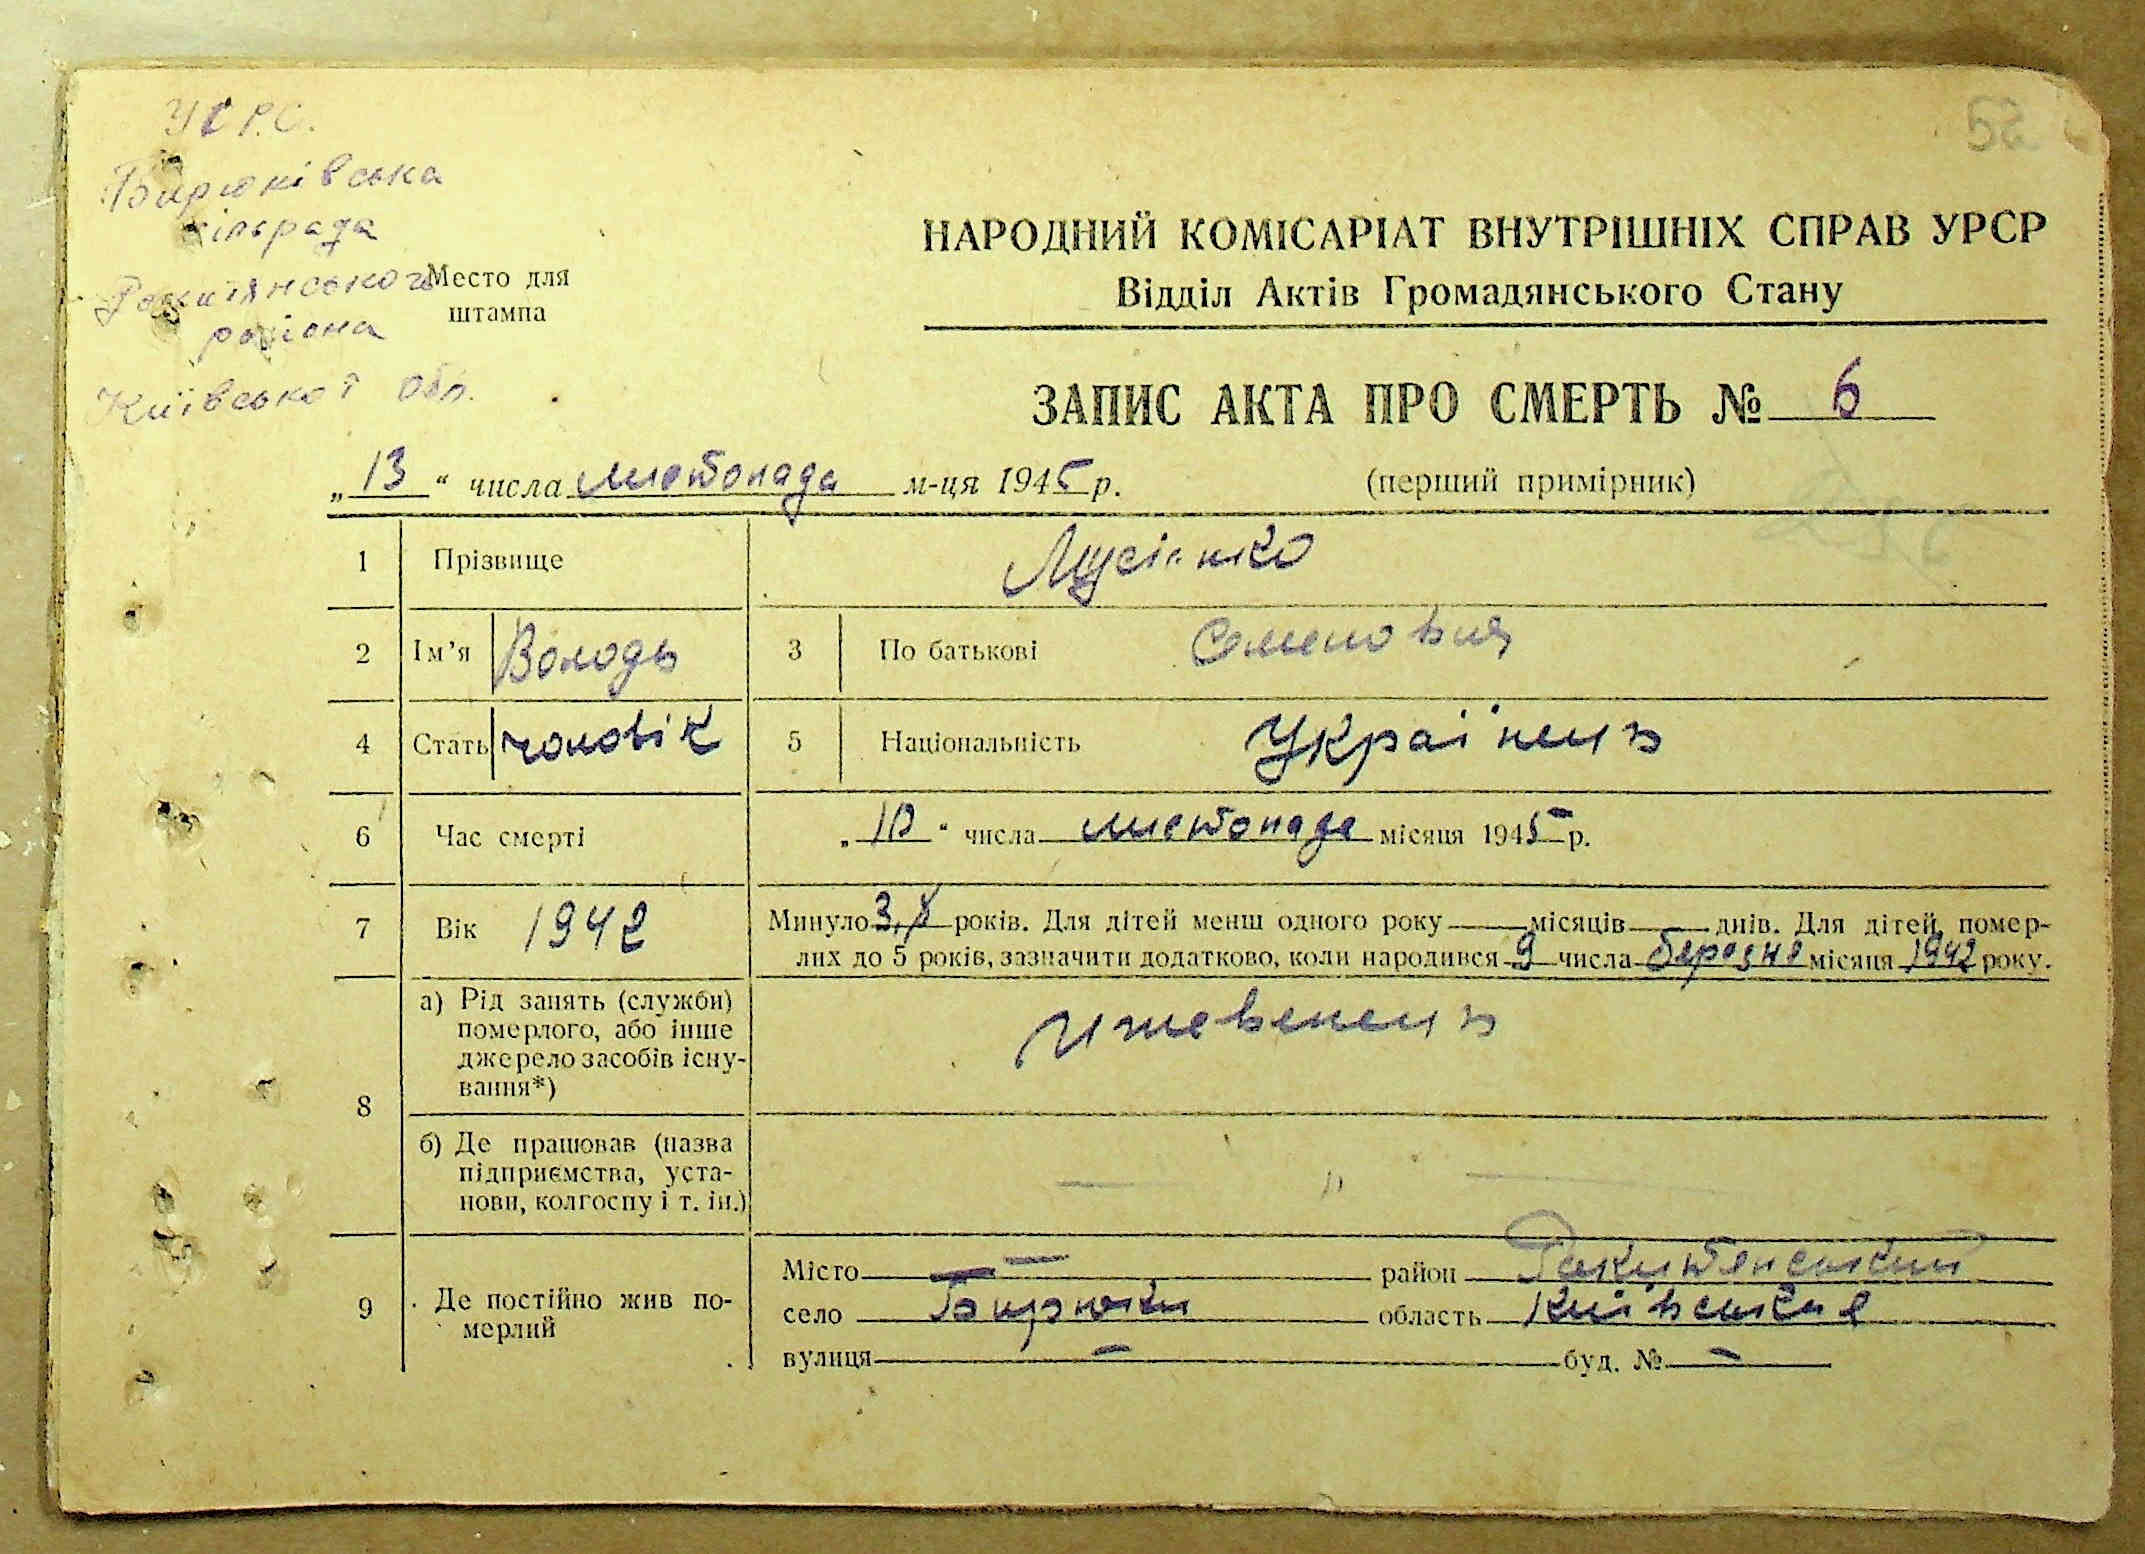 У С Р.С.
Бирюківська
сільрада
Рокитянського
района
Київської обл.
Место для
штампа
НАРОДНИЙ КОМІСАРІАТ ВНУТРІШНІХ СПРАВ УРСР
Відділ Актів Громадянського Стану
ЗАПИС АКТА ПРО СМЕРТЬ № 6
„13“ числа листопада м-ця 1945 р.
(перший примірник)
1 Прізвище Мусієнко
2 Ім’я Володь 3 По батькові Семенович
4 Стать чоловік 5 Національність Українець
6 Час смерті „10“ числа листопада місяця 1945 р.
7 Вік 1942 Минуло 3,8 років. Для дітей менш одного року місяців днів. Для дітей, помер-
лих до 5 років, зазначити додатково, коли народився 9 числа березня місяця 1942 року.
8 а) Рід занять (служби)
померлого, або інше
джерело засобів існу-
вання*)
Ижевенець
б) Де працював (назва
підприємства, уста-
нови, колгоспу і т. ін.)
— " —
9 Де постійно жив по-
мерлий
Місто — район Ракитянський
село Бирюки область Київська
вулиця — буд. № —